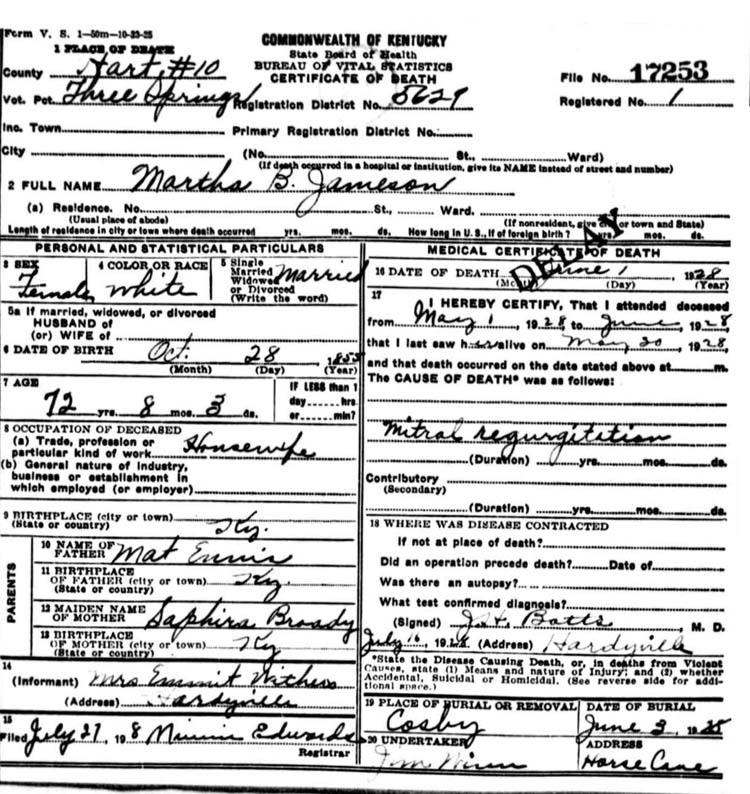 Form V. S. 1-50m-10-23-25
COMMONWEALTH OF KENTUCKY
State Board of Health
BUREAU OF VITAL STATISTICS
CERTIFICATE OF DEATH
1 PLACE OF DEATH
County Hart #10
File No. 17253
Vot. Pct. Three Springs Registration District No. 5629
Registered No. 1
Inc. Town Primary Registration District No.
City (No. St., Ward)
(If death occurred in a hospital or institution, give its NAME instead of street and number)
2 FULL NAME Martha B. Jameson
(a) Residence. No. St., Ward.
(Usual place of abode) (If nonresident, give city or town and State)
Length of residence in city or town where death occurred yrs. mos. ds. How long in U. S., if of foreign birth? yrs. mos. ds.
DELAY
PERSONAL AND STATISTICAL PARTICULARS
3 SEX Female
4 COLOR OR RACE White
5 Single Married Widowed or Divorced (Write the word) Married
5a If married, widowed, or divorced
HUSBAND of
(or) WIFE of
6 DATE OF BIRTH Oct. 28 1855
(Month) (Day) (Year)
7 AGE
72 yrs. 8 mos. 3 ds.
IF LESS than 1
day hrs.
or min?
8 OCCUPATION OF DECEASED
(a) Trade, profession or
particular kind of work Housewife
(b) General nature of industry,
business or establishment in
which employed (or employer)
9 BIRTHPLACE (city or town)
(State or country) Ky.
PARENTS
10 NAME OF
FATHER Mat Ennis
11 BIRTHPLACE
OF FATHER (city or town) Ky.
(State or country)
12 MAIDEN NAME
OF MOTHER Saphira Broady
13 BIRTHPLACE
OF MOTHER (city or town) Ky
(State or country)
14
(Informant) Mrs Emmit Withers
(Address) Hardyville
15
Filed July 27, 198 Edwards
Registrar
MEDICAL CERTIFICATE OF DEATH
16 DATE OF DEATH June 1 1928
(Month) (Day) (Year)
17
I HEREBY CERTIFY, That I attended deceased
from May 1, 1928, to June, 1928
that I last saw her alive on May 20, 1928,
and that death occurred on the date stated above at m.
The CAUSE OF DEATH* was as follows:
Mitral regurgitation
(Duration) yrs. mos. ds.
Contributory
(Secondary)
(Duration) yrs. mos. ds.
18 WHERE WAS DISEASE CONTRACTED
If not at place of death?
Did an operation precede death? Date of
Was there an autopsy?
What test confirmed diagnosis?
(Signed) J.H. Botts, M. D.
July 16, 1928 (Address) Hardyville
*State the Disease Causing Death, or, in deaths from Violent
Causes, state (1) Means and nature of Injury; and (2) whether
Accidental, Suicidal or Homicidal. (See reverse side for addi-
tional space.)
19 PLACE OF BURIAL OR REMOVAL
Cosby
DATE OF BURIAL
June 3, 1928
20 UNDERTAKER
ADDRESS
Horse Cave